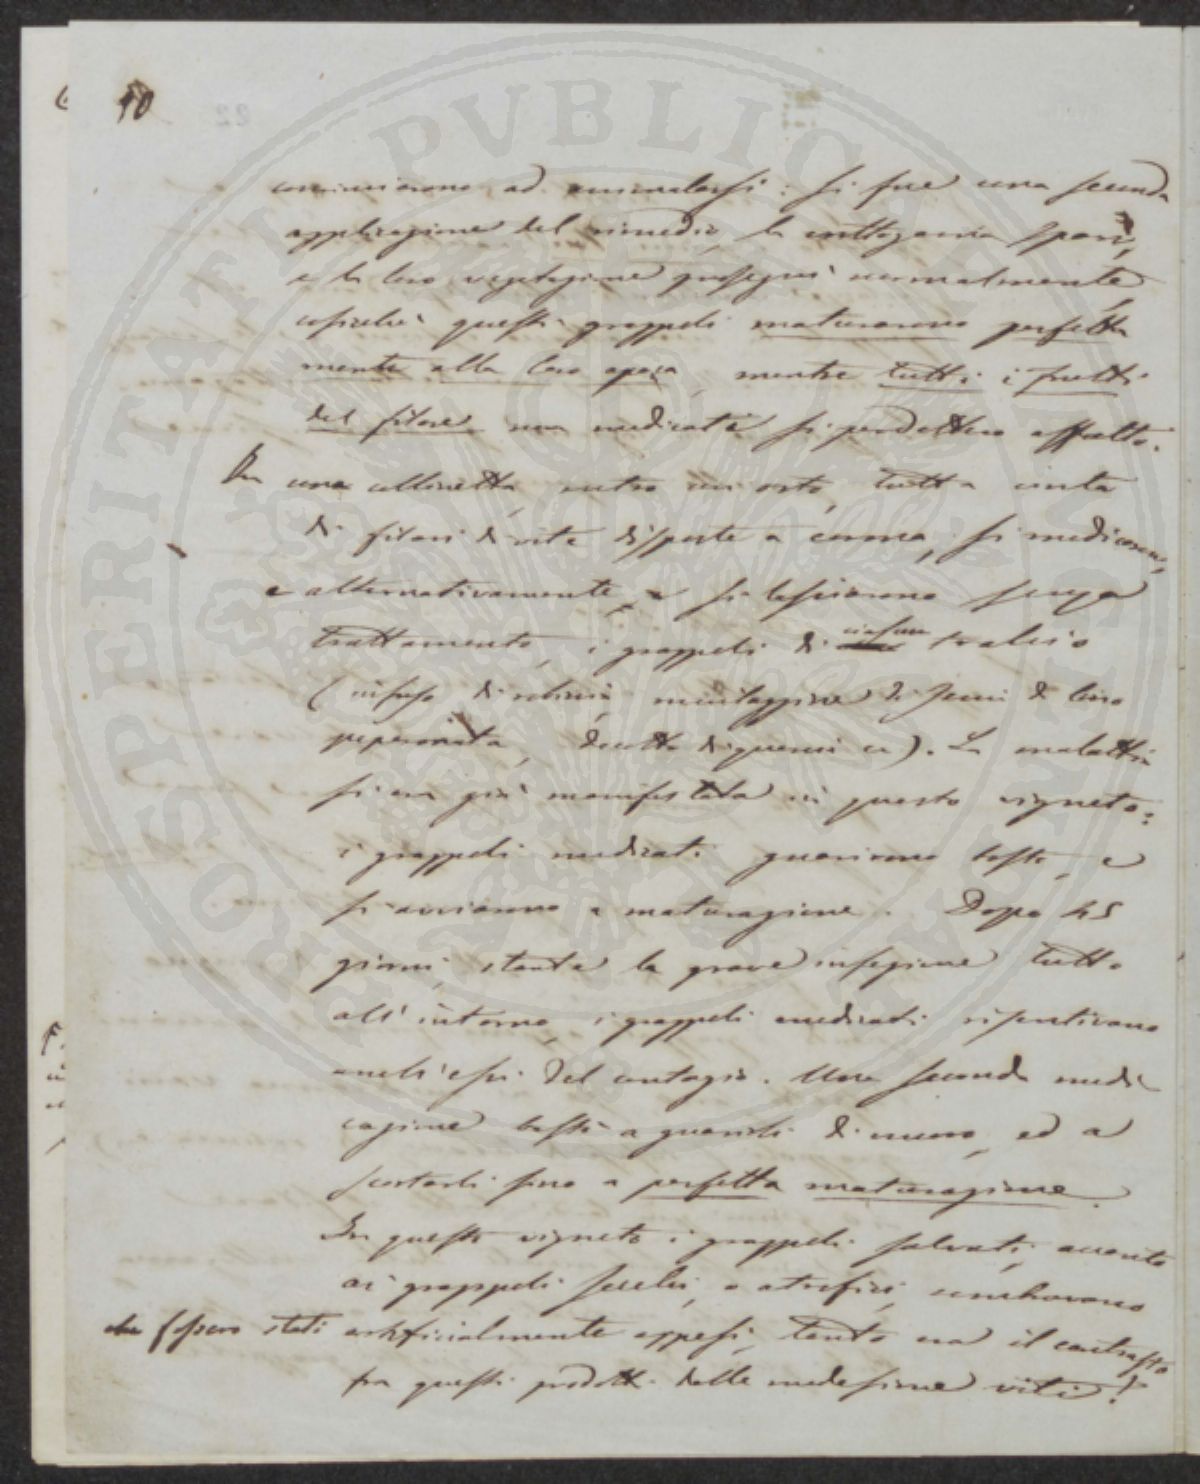 10
cominciarono ad ammalarsi: si fece una seconda
applicazione del rimedio, la crittogamia sparì,
e la loro vegetazione proseguì normalmente
cosicché questi grappoli maturarono perfetta
mente alla loro epoca, mentre tutti i frutti
del filare non medicati si perdettero affatto.
In una collinetta, entro un orto, tutta cinta
di filari di vite disposte a corona, si medicarono,
e alternativamente, e si lasciarono senza
trattamento, i grappoli di ciascun tralcio
(infuso di robinia, mucilaggine di semi di lino
peperonata, decotto di guerini ec). La malattia
si era già manifestata in questo vigneto:
i grappoli medicati guarirono tosto, e
si avviarono a maturazione. Dopo 45
giorni, stante la grave infezione tutto
all'intorno, i grappoli medicati risentivano
anch'essi del contagio. Una seconda medi
cazione bastò a guarirli di nuovo, ed a
portarli sino a perfetta maturazione.
In questo vigneto i grappoli salvati, accanto
ai grappoli secchi, o atrofici, sembravano
che fossero stati artificialmente appesi, tanto era il contrasto
fra questi prodotti delle medesime viti!
PROSPERITATI PVBLICAE